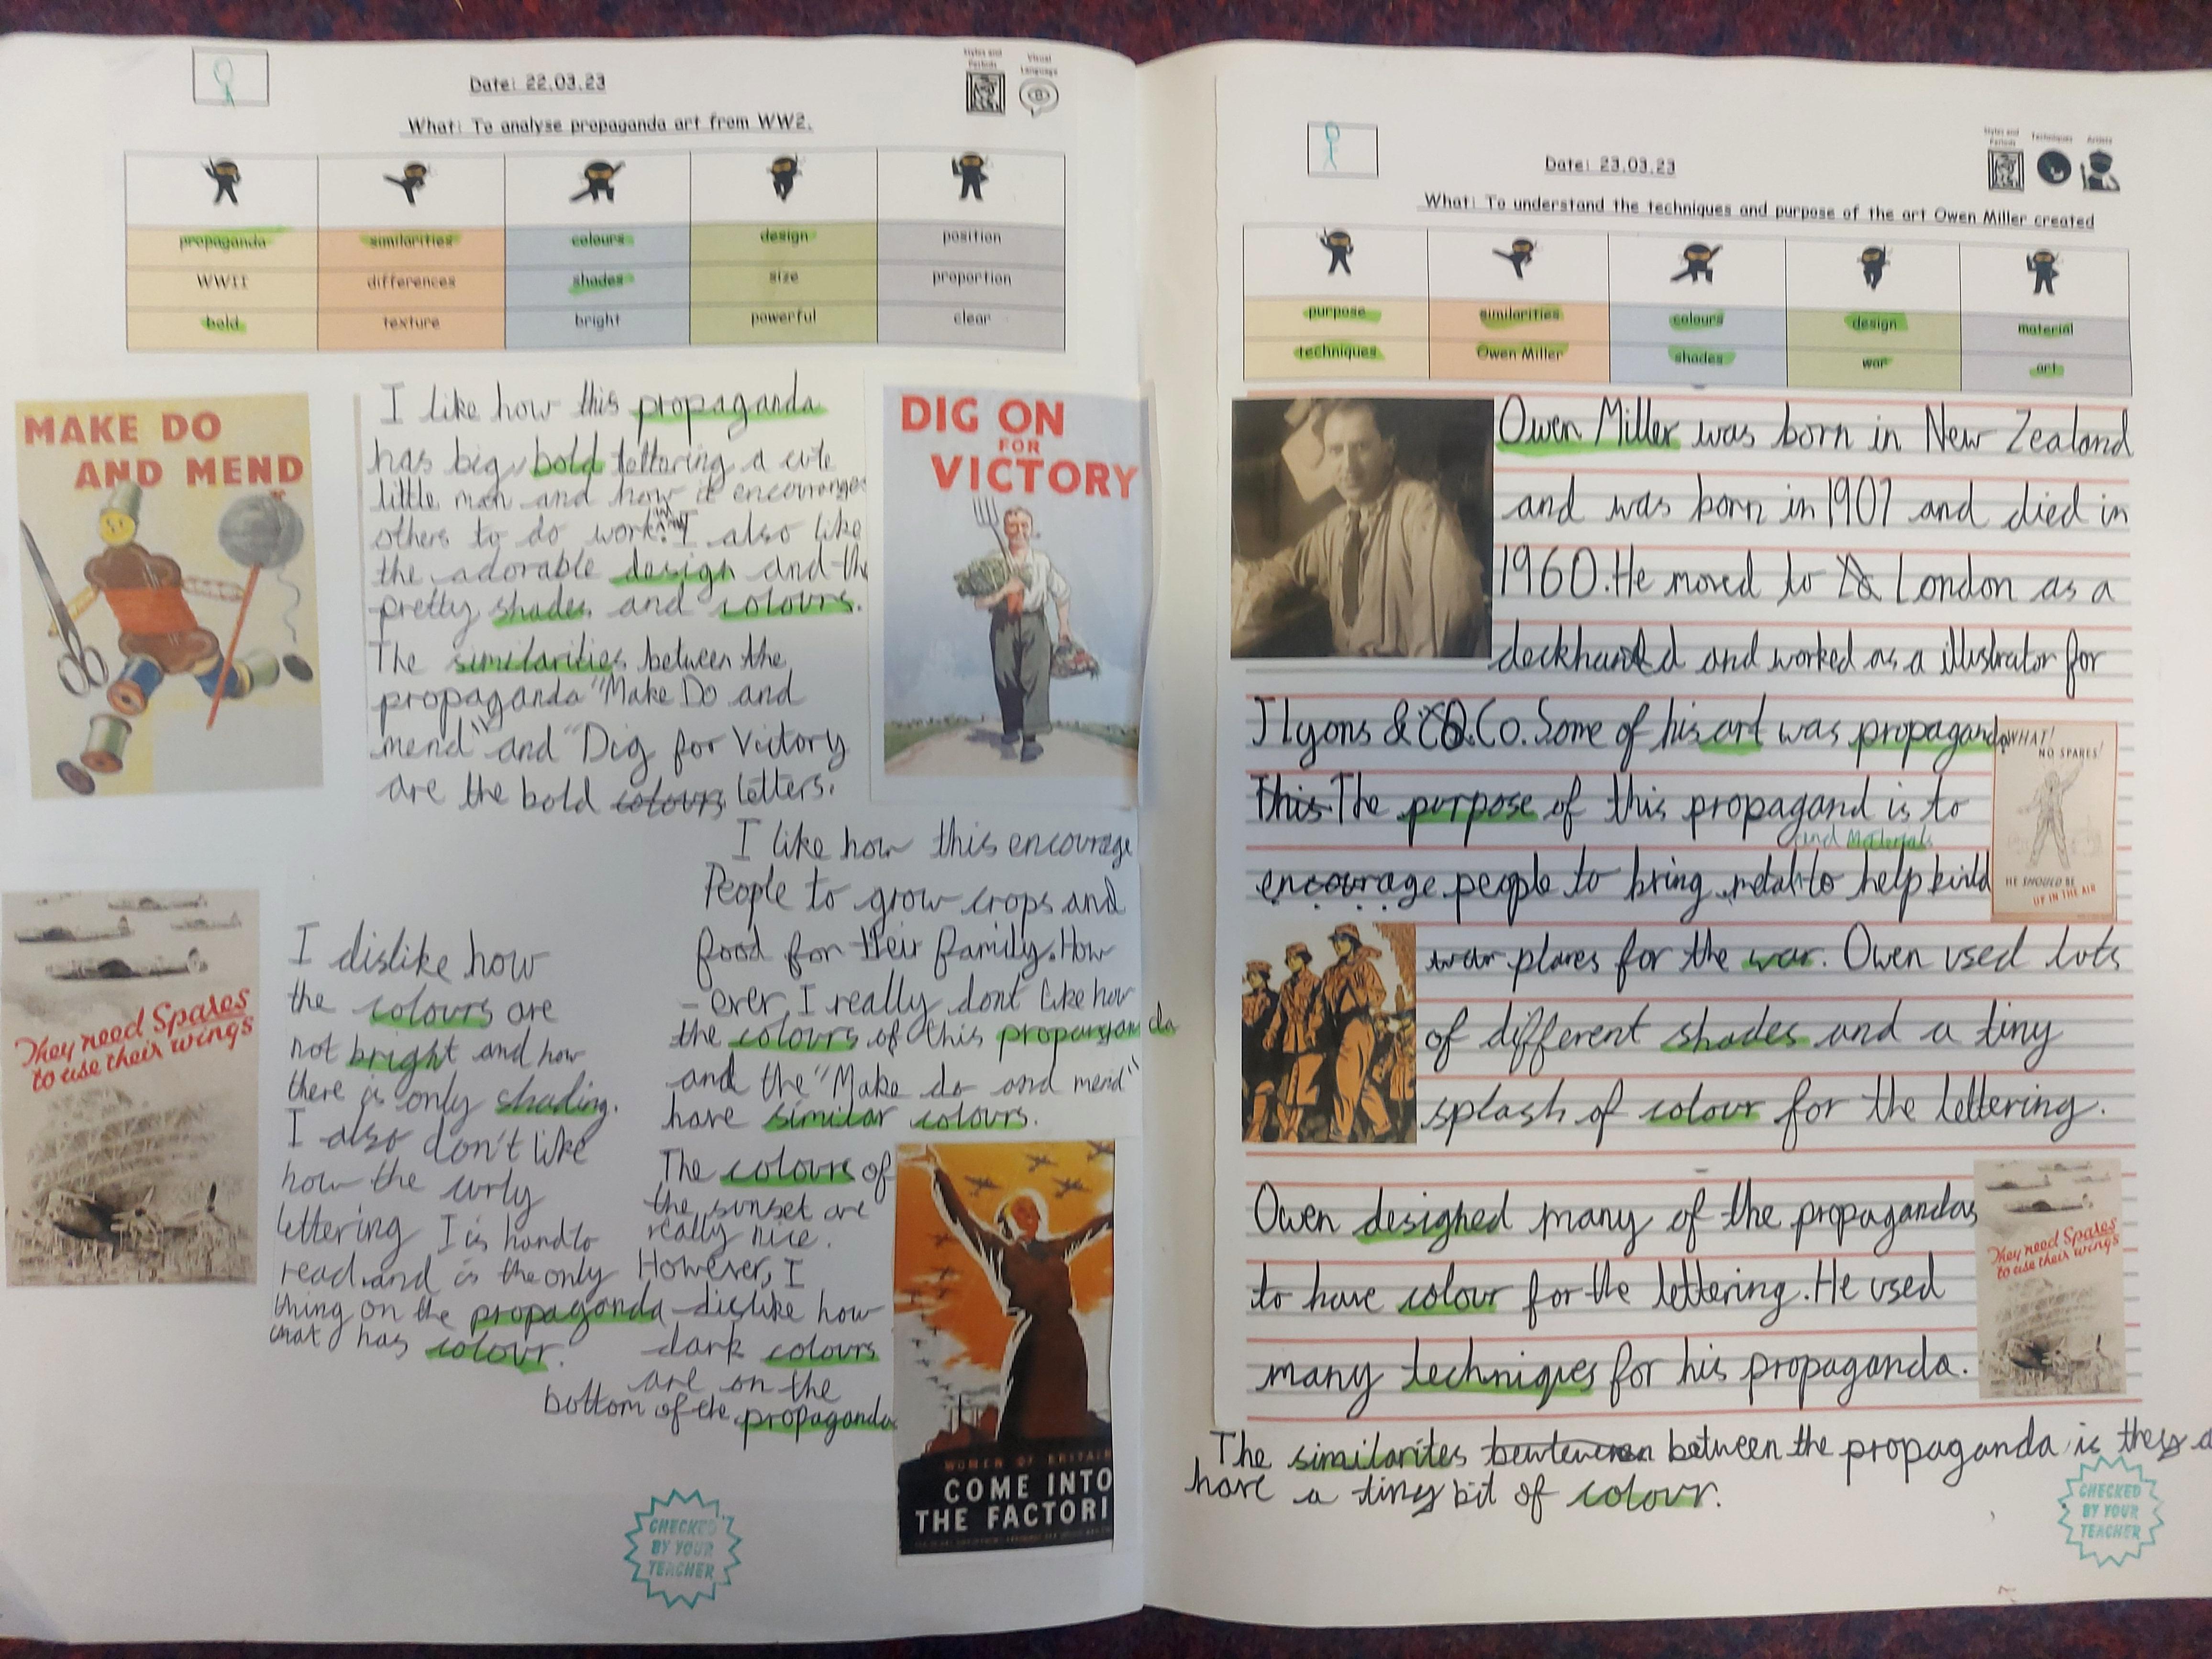 Styles and
Periods
Visual
Language
Date: 22.03.23
What: To analyse propaganda art from WW2.
propaganda similarities colours design position
WWII differences shades size proportion
bold texture bright powerful clear
MAKE DO
AND MEND
I like how this propaganda
has big, bold lettering a cute
little man and how it encourages
others to do work. I also like
the adorable design and the
pretty shades and colours.
The similarities between the
propaganda "Make Do and
mend" and "Dig for Victory
are the bold colours letters.
DIG ON
FOR
VICTORY
I like how this encourage
People to grow crops and
food for their family. How
-ever, I really dont like how
the colours of this propanganda
and the "Make do and mend"
have similar colours.
They need Spares
to use their wings
I dislike how
the colours are
not bright and how
there is only shading.
I also don't like
how the curly
lettering I is hard to
read and is the only
thing on the propaganda
that has colour.
The colours of
the sunset are
really nice.
However, I
dislike how
dark colours
are on the
bottom of the propaganda
WOMEN OF BRITAIN
COME INTO
THE FACTORI
CHECKED
BY YOUR
TEACHER
Styles and
Periods
Techniques
Artists
Date: 23.03.23
What: To understand the techniques and purpose of the art Owen Miller created
purpose similarities colours design material
techniques Owen Miller shades war art
Owen Miller was born in New Zealand
and was born in 1907 and died in
1960. He moved to London as a
deckhand and worked as a illustrator for
J lyons & Co. Some of his art was propaganda
This The purpose of this propagand is to
and Materials
encourage people to bring metal to help build
war planes for the war. Owen used lots
of different shades and a tiny
splash of colour for the lettering.
WHAT!
NO SPARES!
HE SHOULD BE
UP IN THE AIR
Owen designed many of the propagandas
to have colour for the lettering. He used
many techniques for his propaganda.
They need Spares
to use their wings
The similarites between the propaganda is they
have a tiny bit of colour.
CHECKED
BY YOUR
TEACHER